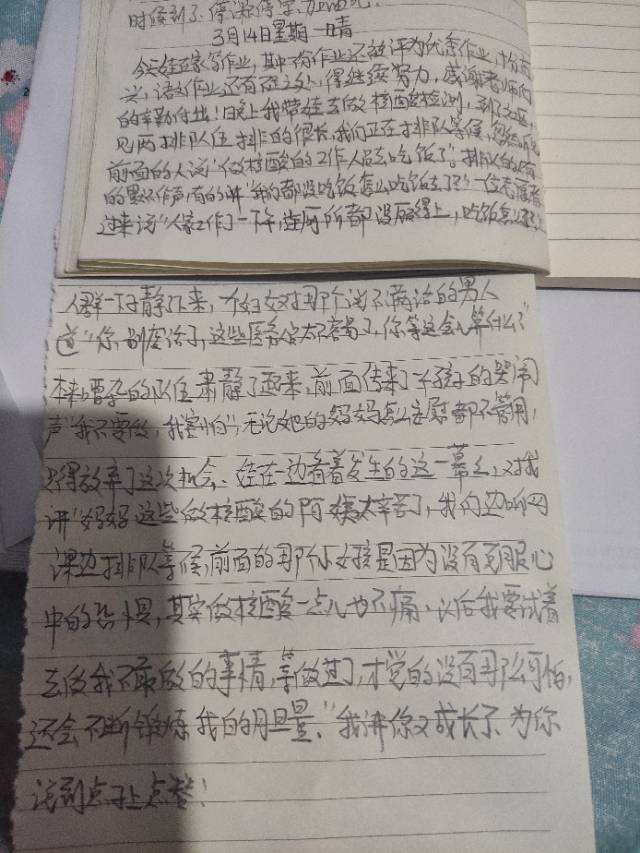 时候到了。
3月14日星期一晴
今天娃在家写作业,其中有作业还被评为优秀作业,十分高
兴,语文作业还有不足之处,得继续努力,感谢老师们
的辛勤付出!晚上我带娃去做核酸检测,到了
见两排队伍排的很长,我们正在排队等候,忽然听见
前面的人说“做核酸的工作人员去吃饭了”。排队的有
的默不作声,有的讲“我们都没吃饭怎么吃饭去了?”一位志愿者
过来说“人家工作了一下午,连厕所都没顾得上,吃饭怎么了?”
人群一下子静下来,一个妇女对那个说不满话的男人
道“你别废话了,这些医务人员太不容易了,你等这会儿算什么?”
本来嘈杂的队伍肃静了起来,前面传来了一个孩子的哭闹
声“我不要做,我害怕”,无论她的妈妈怎么安慰都不管用,
只得放弃了这次机会、娃在一边看着发生的这一幕幕,对我
讲“妈妈这些做核酸的阿姨太辛苦了,我们边听网
课边排队等候,前面的那个小女孩是因为没有克服心
中的恐惧,其实做核酸一点儿也不痛、以后我要试着
去做我不敢做的事情,等做过了,才觉的没有那么可怕,
还会不断锻炼我自的胆量。”我讲你又成长了、为你
说到点子上点赞!